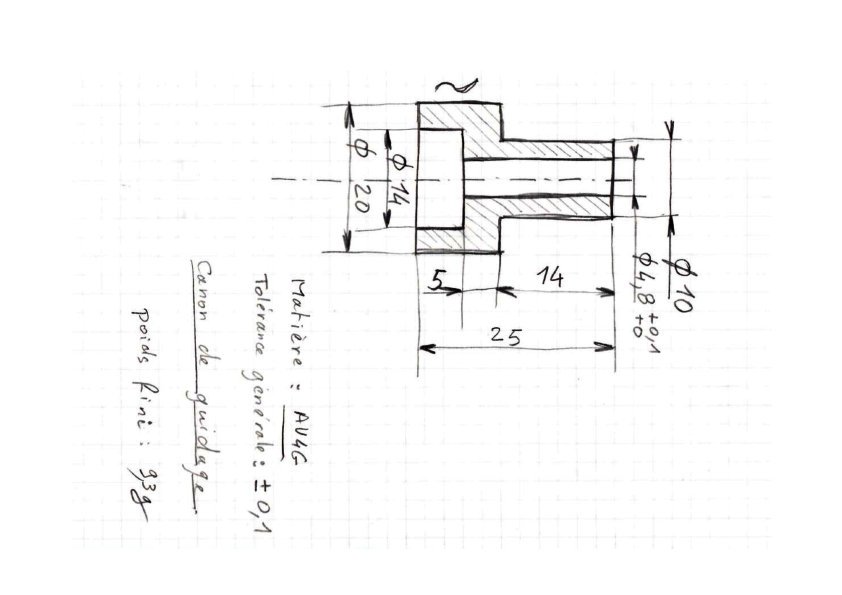 ϕ 20
ϕ 14
5
14
25
ϕ 4,8 +0,1
+0
ϕ 10
Matière : AU4G
Tolérance générale : ± 0,1
Canon de guidage
poids fini : 9,3g